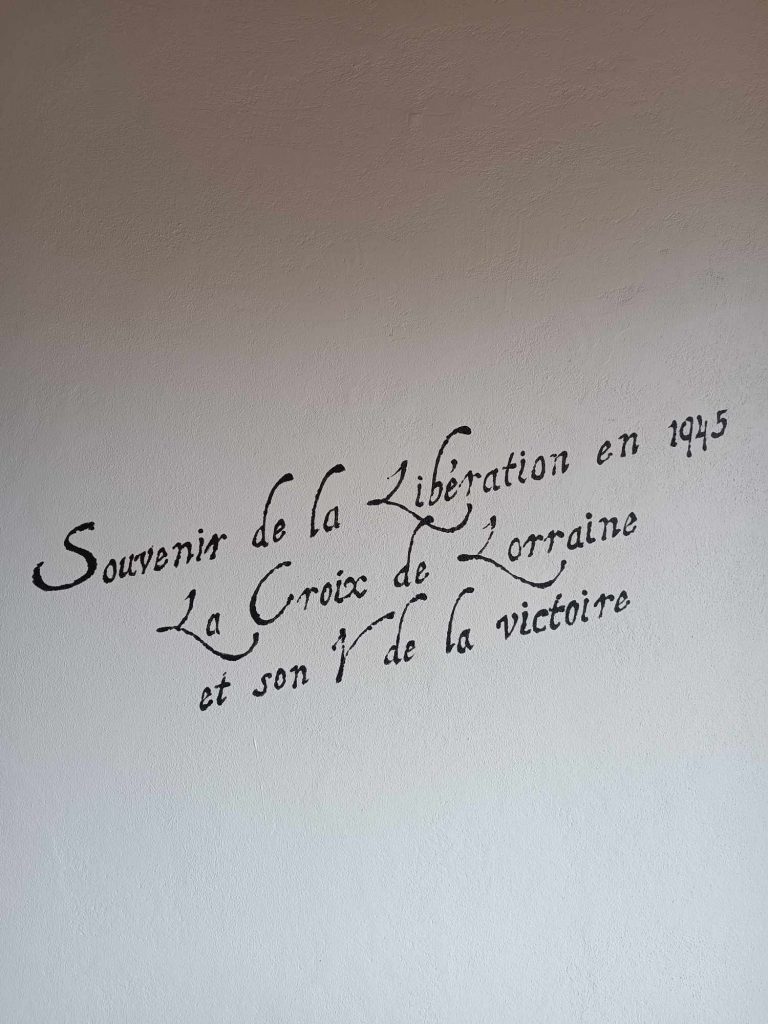 Souvenir de la Libération en 1945
La Croix de Lorraine
et son V de la victoire